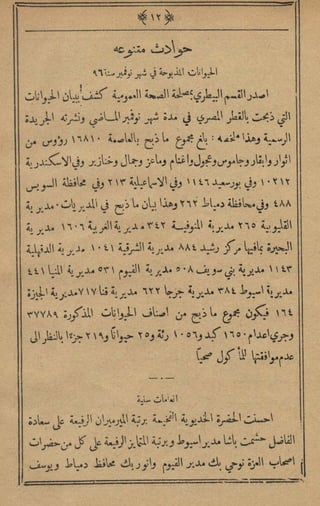 ﴿ ١٢ ﴾
حوادث متنوعه
الحيوانات المذبوحة في شهر نوفمبر سنة ٩٦
اصدر القسم البيطري بمصلحة الصحة العمومية كشف ببيان الحيوانات
التي ذبحت بالقطر المصري في مدة شهر نوفمبر الماضي ونشرته الجريدة
الرسمية وهذا ملخصه : بلغ مجموع ما ذبح بالعاصمة ١٦٨١٠ رؤوس من
اثوار وابقار وجاموس وعجول واغنام وماعز وجمال وخنازير وفي الاسكندرية
١٠٢١٢ وفي بورسعيد ١١٤٦ وفي الاسماعيلية ٢١٣ وفي محافظة السويس
٤٨٨ وفي محافظة دمياط ٢٦٢ وهذا بيان ما ذبح في المديريات ٠ مديرية
القليوبية ٢٦٥ مديرية المنوفية ٣٤٢ مديرية الغربية ١٦٠٦ مديرية
البحيرة بما فيها مركز رشيد ٨٨٤ مديرية الشرقية ١٠٤١ مديرية الدقهلية
١١٤٣ مديرية بني سويف ٥٠٨ مديرية الفيوم ٥٣١ مديرية المنيا ٤٤١
مديرية اسيوط ٣٨٤ مديرية جرجا ٦٢٢ مديرية قنا ٧١٧ مديرية الجيزة
١٦٤ فيكون مجموع ما ذبح من اصناف الحيوانات المذكورة ٣٧٧٨٩
وجرى اعدام ١٦٥٠ كبد و١٠٥٦ رئة و٢٥ حيوانًا و٢١٩ جزءًا بالنظر الى
عدم موافقتها للمأكول صحيًا
انعامات سنية
احسنت الحضرة الخديوية الفخيمة برتبة الميرميران الرفيعة على سعادة
الفاضل حشمت باشا مدير اسيوط وبرتبة المتمايز الرفيعة على كل من حضرات
اصحاب العزة نوحي بك مدير الفيوم وانور بك محافظ دمياط ويوسف